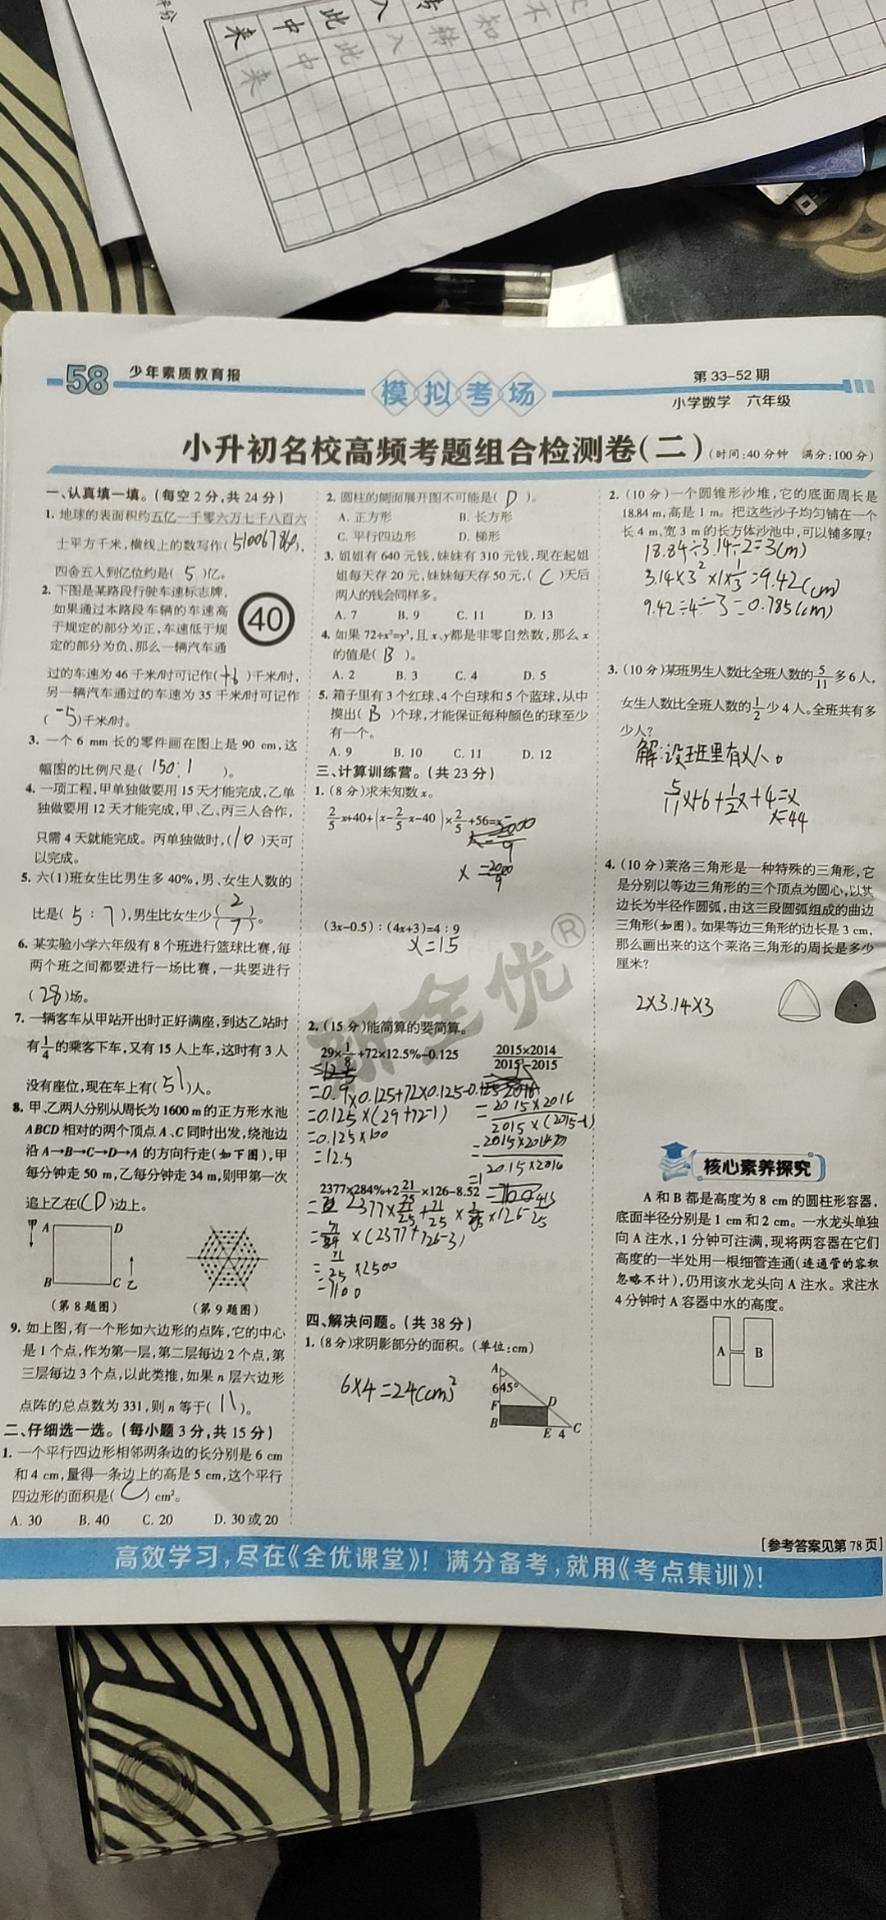 来 中 此 入 转 知 不
来 中 此 入
58 少年素质教育报
模拟考场
第 33-52 期
小学数学 六年级
小升初名校高频考题组合检测卷(二)(时间:40 分钟 满分:100 分)
一、认真填一填。(每空 2 分,共 24 分)
1. 地球的表面积约五亿一千零六万七千八百六
十平方千米,横线上的数写作(510067860),
四舍五入到亿位约是( 5 )亿。
2. 下图是某路段行驶车速标志牌,
如果通过本路段车辆的车速高
于规定的部分为正,车速低于规
定的部分为负,那么一辆汽车通
40
过的车速为 46 千米/时可记作(+6)千米/时,
另一辆汽车通过的车速为 35 千米/时可记作
( -5 )千米/时。
3. 一个 6 mm 长的零件画在图上是 90 cm,这
幅图的比例尺是( 150:1 )。
4. 一项工程,甲单独做要用 15 天才能完成,乙单
独做要用 12 天才能完成,甲、乙、丙三人合作,
只需 4 天就能完成。丙单独做时,( 10 )天可
以完成。
5. 六(1)班女生比男生多 40%,男、女生人数的
比是( 5 : 7 ),男生比女生少(2)/(7)。
6. 某实验小学六年级有 8 个班进行篮球比赛,每
两个班之间都要进行一场比赛,一共要进行
( 28 )场。
7. 一辆客车从甲站开出时正好满座,到达乙站时
有1/4的乘客下车,又有 15 人上车,这时有 3 人
没有座位,现在车上有( 51 )人。
8. 甲、乙两人分别从周长为 1600 m 的正方形水池
ABCD 相对的两个顶点 A、C 同时出发,绕池边
沿 A→B→C→D→A 的方向行走(如下图),甲
每分钟走 50 m,乙每分钟走 34 m,则甲第一次
追上乙在(CD)边上。
甲 A D
B C 乙
(第 8 题图) (第 9 题图)
9. 如上图,有一个形如六边形的点阵,它的中心
是 1 个点,作为第一层,第二层每边 2 个点,第
三层每边 3 个点,以此类推,如果 n 层六边形
点阵的总点数为 331,则 n 等于( 11 )。
二、仔细选一选。(每小题 3 分,共 15 分)
1. 一个平行四边形相邻两条边的长分别是 6 cm
和 4 cm,量得一条边上的高是 5 cm,这个平行
四边形的面积是( C ) cm²。
A. 30 B. 40 C. 20 D. 30 或 20
2. 圆柱的侧面展开图不可能是( D )。
A. 正方形 B. 长方形
C. 平行四边形 D. 梯形
3. 姐姐有 640 元钱,妹妹有 310 元钱,现在起姐
姐每天存 20 元,妹妹每天存 50 元,( C )天后
两人的钱会同样多。
A. 7 B. 9 C. 11 D. 13
4. 如果 72÷x²=y³,且 x、y都是非零自然数,那么 x
的值是( B )。
A. 2 B. 3 C. 4 D. 5
5. 箱子里有 3 个红球、4 个白球和 5 个蓝球,从中
摸出( B )个球,才能保证每种颜色的球至少
有一个。
A. 9 B. 10 C. 11 D. 12
三、计算训练营。(共 23 分)
1. (8 分)求未知数 x。
2/5x+40+(x-2/5x-40)×2/5+56=x
x=2000/9
(3x-0.5):(4x+3)=4:9
x=15
2. (15 分)能简算的要简算。
29×1/8+72×12.5%-0.125
=0.125×(29+72-1)
=0.125×100
=12.5
2015×2014/2015²-2015
=2015×2014
2015×(2015-1)
=1
2377×284%+2 21/25×126-8.52
=71/25×(2377+126-3)
=71/25×2500
=7100
四、解决问题。(共 38 分)
1. (8 分)求阴影部分的面积。(单位:cm)
6×4=24(cm)²
A
6 45°
F D
B E 4 C
2. (10 分)一个圆锥形沙堆,它的底面周长是
18.84 m,高是 1 m。把这些沙子均匀铺在一个
长 4 m、宽 3 m 的长方体沙池中,可以铺多厚?
18.84÷3.14÷2=3(m)
3.14×3²×1×1/3=9.42(m)
9.42÷4÷3=0.785(m)
3. (10 分)某班男生人数比全班人数的5/11多 6 人,
女生人数比全班人数的1/2少 4 人。全班共有多
少人?
解:设班里有x人。
5/11x+6+1/2x+4=x
x=44
4. (10 分)莱洛三角形是一种特殊的三角形,它
是分别以等边三角形的三个顶点为圆心,以其
边长为半径作圆弧,由这三段圆弧组成的曲边
三角形(如图)。如果等边三角形的边长是 3 cm,
那么画出来的这个莱洛三角形的周长是多少
厘米?
2×3.14×3
核心素养探究
A 和 B 都是高度为 8 cm 的圆柱形容器,
底面半径分别是 1 cm 和 2 cm。一水龙头单独
向 A 注水,1 分钟可注满,现将两容器在它们
高度的一半处用一根细管连通(连通管的容积
忽略不计),仍用该水龙头向 A 注水。求注水
4 分钟时 A 容器中水的高度。
A B
[参考答案见第 78 页]
新全优®
高效学习,尽在《全优课堂》! 满分备考,就用《考点集训》!